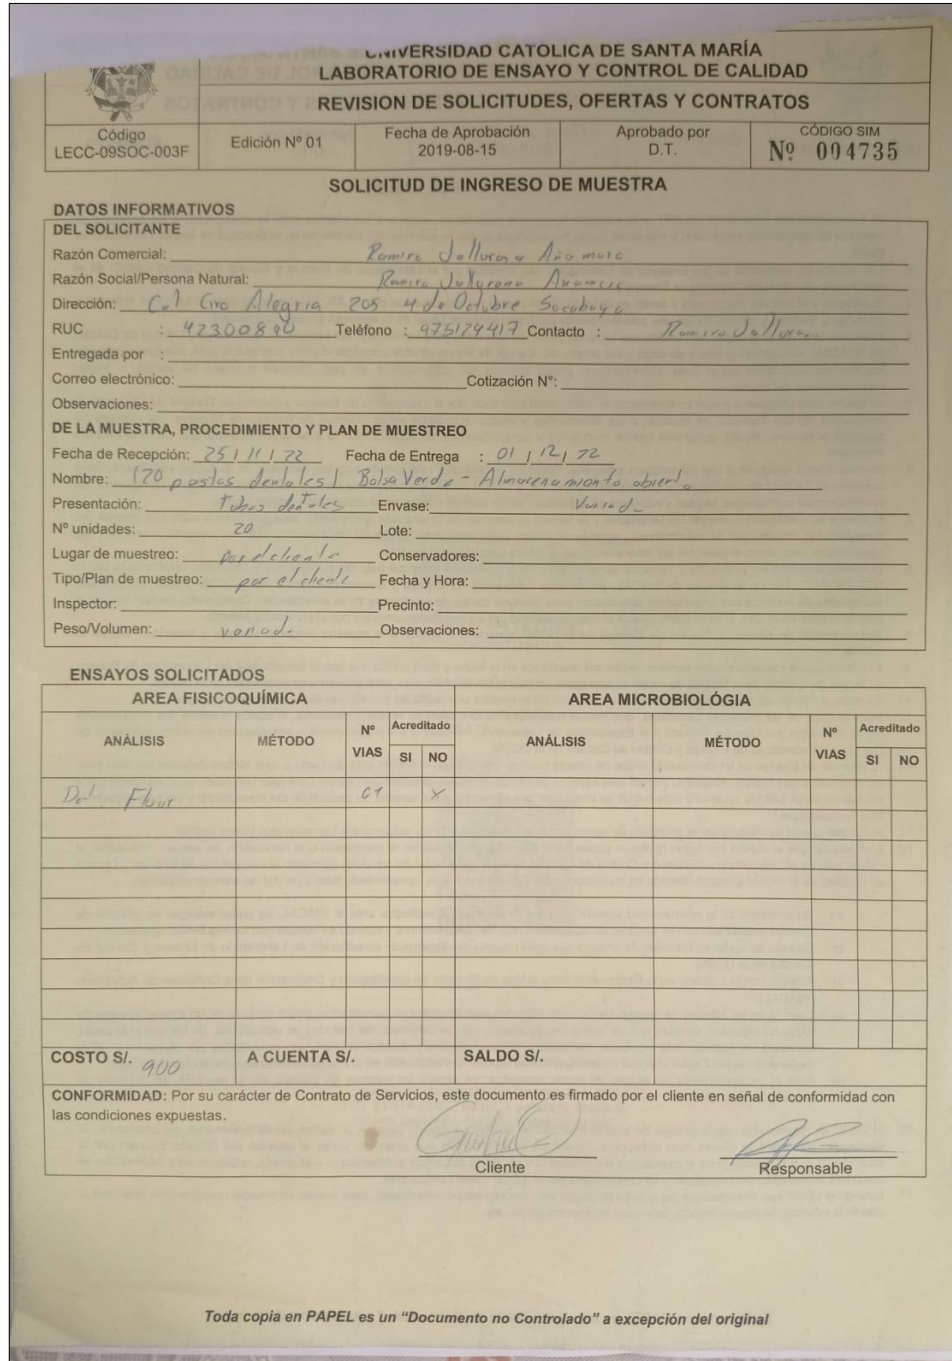 UNIVERSIDAD CATOLICA DE SANTA MARÍA
LABORATORIO DE ENSAYO Y CONTROL DE CALIDAD
REVISION DE SOLICITUDES, OFERTAS Y CONTRATOS
Código
LECC-09SOC-003F
Edición Nº 01
Fecha de Aprobación
2019-08-15
Aprobado por
D.T.
CÓDIGO SIM
Nº 004735
SOLICITUD DE INGRESO DE MUESTRA
DATOS INFORMATIVOS
DEL SOLICITANTE
Razón Comercial: Ramiro
Razón Social/Persona Natural: Ramiro
Dirección: Cal Ciro Alegria 205 4 de Octubre Socabaya
RUC : 42300890 Teléfono : 975129417 Contacto : Ramiro
Entregada por :
Correo electrónico: Cotización N°:
Observaciones:
DE LA MUESTRA, PROCEDIMIENTO Y PLAN DE MUESTREO
Fecha de Recepción: 25/11/22 Fecha de Entrega : 01/12/22
Nombre: (20 pastas dentales) Bolsa Verde - Almacenamiento abierto
Presentación: Tubos dentales Envase: Variad.
Nº unidades: 20 Lote:
Lugar de muestreo: por el cliente Conservadores:
Tipo/Plan de muestreo: por el cliente Fecha y Hora:
Inspector: Precinto:
Peso/Volumen: variad. Observaciones:
ENSAYOS SOLICITADOS
AREA FISICOQUÍMICA AREA MICROBIOLÓGIA
ANÁLISIS MÉTODO Nº VIAS Acreditado SI NO ANÁLISIS MÉTODO Nº VIAS Acreditado SI NO
Det. Flour 01 X
COSTO S/. 900 A CUENTA S/. SALDO S/.
CONFORMIDAD: Por su carácter de Contrato de Servicios, este documento es firmado por el cliente en señal de conformidad con
las condiciones expuestas.
Cliente Responsable
Toda copia en PAPEL es un “Documento no Controlado” a excepción del original